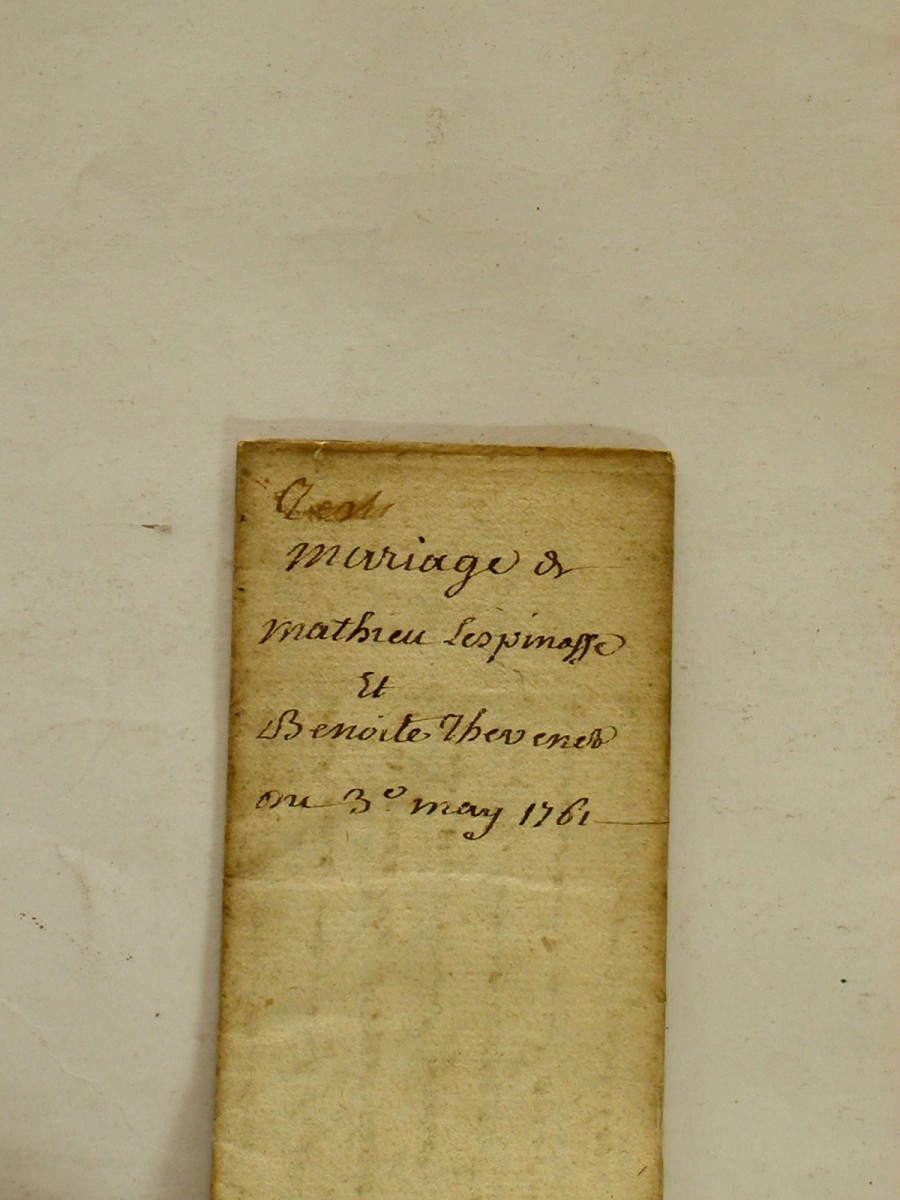 marriage de
mathieu Lespinasse
Et
Benoite Thevenet
du 3e may 1761